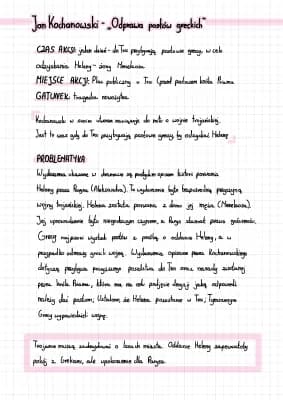 Jan Kochanowski - „Odprawa posłów greckich"
CZAS AKCJI: jeden dzień - do Troi przybywają posłowie greccy, w celu
odzyskania Heleny - żony Menelaosa.
MIEJSCE AKCJI: Plac publiczny w Troi (przed pałacem króla Priama
GATUNEK: tragedia nowożytna
Kochanowski w swoim utworze nawiązuje do mitu o wojnie trojańskiej.
Jest to czas gdy do Troi przybywają posłowie greccy by odzyskać Helenę
PROBLEMATYKA
Wydarzenia ukazane w dramacie są poetyckim opisem historii porwania
Heleny przez Parysa (Aleksandra). To wydarzenie było bezpośrednią przyczyną
wojny trojańskiej. Helena została porwana z domu jej męża (Menelaosa).
Jej uprowadzenie było niegodziwym czynem, a Parys złamał prawo gościnności.
Grecy najpierw wysłali posłów z prośbą o oddanie Heleny, a w
przypadku odmowy grozili wojną. Wydarzenia opisane przez Kochanowskiego
dotyczą przybycia greckiego poselstwa do Troi oraz narady zwołanej
przez króla Priama, która ma na celu podjęcie decyzji jaką odpowiedź
należy dać posłom. Ustalono, że Helena pozostanie w Troi,
Grecy wypowiedzieli wojnę.
Trojanie muszą zadecydować o losach miasta. Oddanie Heleny zapewniłoby
pokój z Grekami, ale upokorzenie dla Parysa.